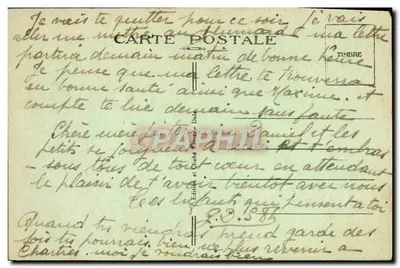 Je vais te quitter pour ce soir, je vais
me mettre au plumard ma lettre
CARTE POSTALE
partira demain matin de bonne heure
TIMBRE
Je pense que ma lettre te trouvera
en bonne santé ainsi que Maxime. et
compte te lire demain sans faute
Chère mère Daniel et les
petits se et t'embras
sons tous de tout cœur en attendant
le plaisir de t'avoir bientôt avec nous
Tes enfants qui pensent a toi
Quand tu viendras prend garde des
fois tu pourrais bien ne plus revenir a
Chartres. moi je voudrais bien